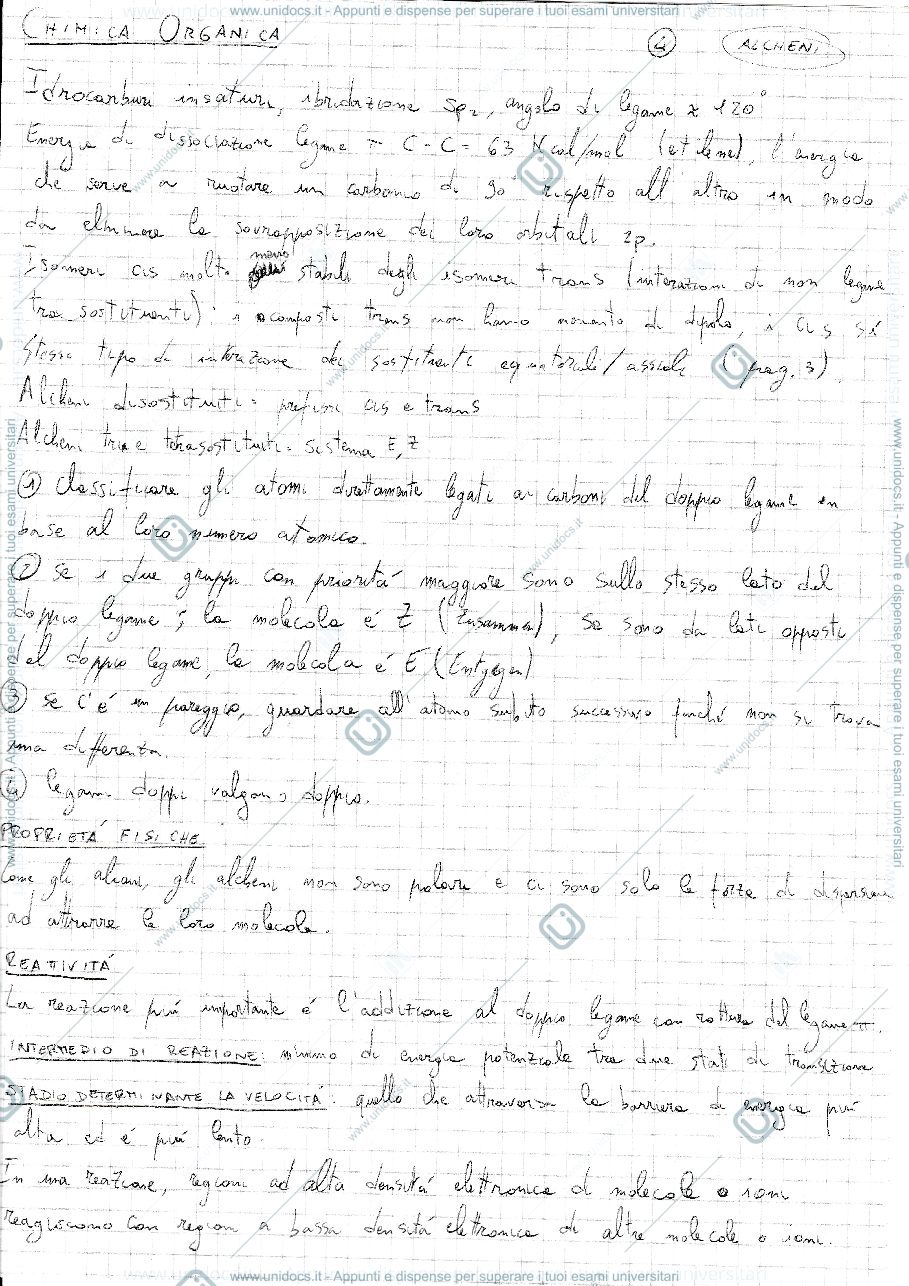 www.unidocs.it - Appunti e dispense per superare i tuoi esami universitari
CHIMICA ORGANICA
4
ALCHENI
Idrocarburi insaturi, ibridazione sp2, angolo di legame ≈ 120°
Energia di dissociazione legame π C-C = 63 Kcal/mol (etilene), l'energia
che serve a ruotare un carbonio di 90° rispetto all'altro in modo
da eliminare la sovrapposizione dei loro orbitali 2p.
Isomeri cis molto meno stabili degli isomeri trans (interazioni di non legame
tra sostituenti): i composti trans non hanno momento di dipolo, i cis sì
Stesso tipo di interazione dei sostituenti equatoriale/assiale (pag. 3)
Alcheni disostituiti: prefissi cis e trans
Alcheni tri e tetrasostituiti: sistema E, Z
1 Classificare gli atomi direttamente legati ai carboni del doppio legame in
base al loro numero atomico.
2 Se i due gruppi con prioritá maggiore sono sullo stesso lato del
doppio legame, la molecola é Z (Zusammen), se sono da lati opposti
del doppio legame, la molecola é E (Entgegen)
3 Se c'é un pareggio, guardare all'atomo subito successivo finché non si trova
una differenza.
4 legami doppi valgono doppio.
PROPRIETÁ FISICHE
Come gli alcani, gli alcheni non sono polari e ci sono solo le forze di dispersione
ad attrarre le loro molecole.
REATTIVITÁ
La reazione piú importante é l'addizione al doppio legame con rottura del legame π.
INTERMEDIO DI REAZIONE: minimo di energia potenziale tra due stati di transizione
STADIO DETERMINANTE LA VELOCITÁ: quello che attraversa la barriera di energia piú
alta ed é piú lento.
In una reazione, regioni ad alta densitá elettronica di molecole o ioni
reagiscono con regioni a bassa densitá elettronica di altre molecole o ioni.
www.unidocs.it - Appunti e dispense per superare i tuoi esami universitari